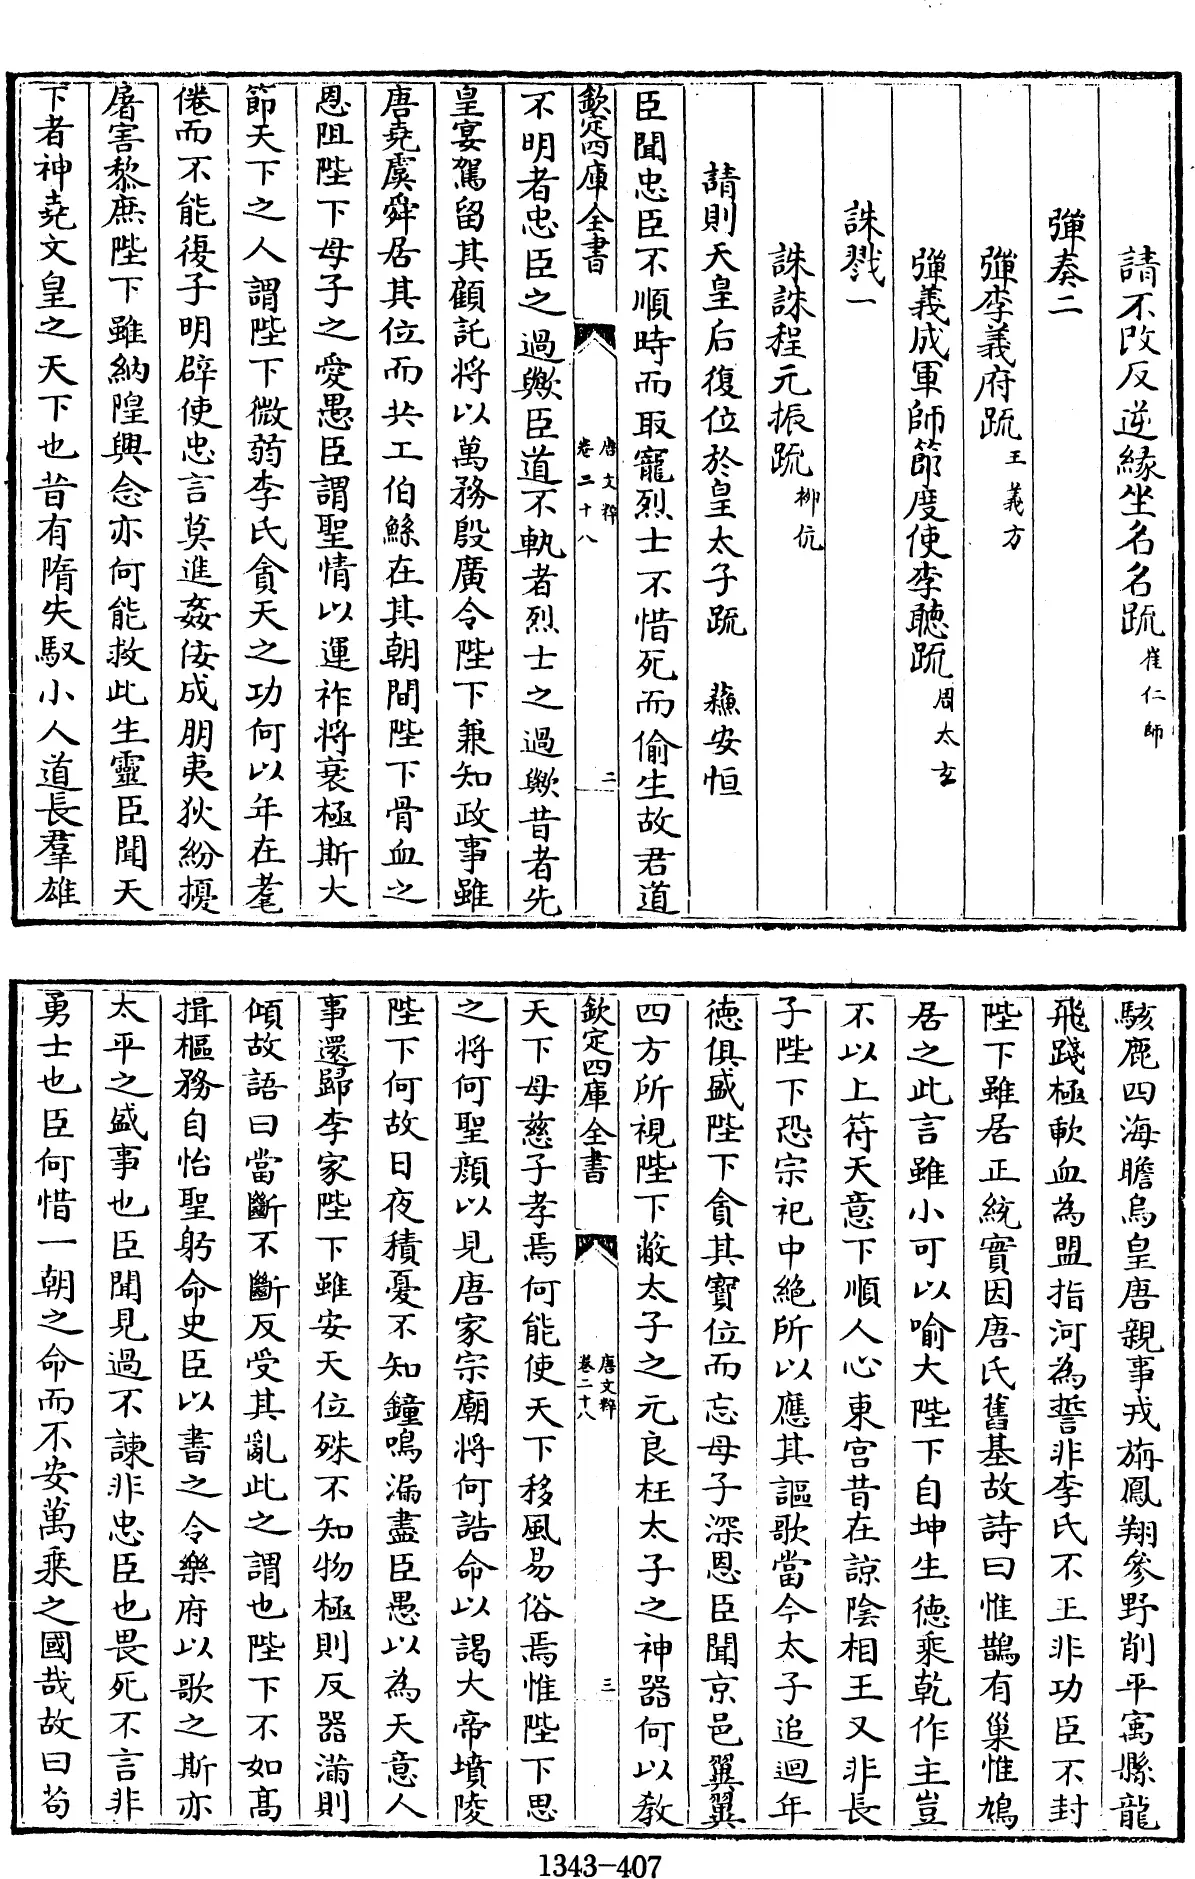 請不改反逆緣坐名名疏崔仁師
彈奏二
彈李義府疏王義方
彈義成軍師節度使李聽疏周太玄
誅戮一
誅誅程元振疏柳伉
請則天皇后復位於皇太子疏 蘇安恒
臣聞忠臣不順時而取寵烈士不惜死而偷生故君道
欽定四庫全書 唐文粹卷二十八 二
不明者忠臣之過歟臣道不軌者烈士之過歟昔者先
皇宴駕留其顧託將以萬務殷廣令陛下兼知政事雖
唐堯虞舜居其位而共工伯鯀在其朝間陛下骨血之
恩阻陛下母子之愛愚臣謂聖情以運祚將衰極斯大
節天下之人謂陛下微弱李氏貪天之功何以年在耄
倦而不能復子明辟使忠言莫進姦佞成朋夷狄紛擾
屠害黎庶陛下雖納隍興念亦何能救此生靈臣聞天
下者神堯文皇之天下也昔有隋失馭小人道長羣雄
駭鹿四海瞻烏皇唐親事戎旃鳳翔參野削平寓縣龍
飛踐極歃血為盟指河為誓非李氏不王非功臣不封
陛下雖居正統實因唐氏舊基故詩曰惟鵲有巢惟鳩
居之此言雖小可以喻大陛下自坤生德乘乾作主豈
不以上符天意下順人心東宮昔在諒陰相王又非長
子陛下恐宗祀中絶所以應其謳歌當今太子追迴年
德俱盛陛下貪其寶位而忘母子深恩臣聞京邑翼翼
四方所視陛下蔽太子之元良枉太子之神器何以教
欽定四庫全書 唐文粹卷二十八 三
天下母慈子孝焉何能使天下移風易俗焉惟陛下思
之將何聖顏以見唐家宗廟將何誥命以謁大帝墳陵
陛下何故日夜積憂不知鐘鳴漏盡臣愚以為天意人
事還歸李家陛下雖安天位殊不知物極則反器滿則
傾故語曰當斷不斷反受其亂此之謂也陛下不如高
揖樞務自怡聖躬命史臣以書之令樂府以歌之斯亦
太平之盛事也臣聞見過不諫非忠臣也畏死不言非
勇士也臣何惜一朝之命而不安萬乘之國哉故曰茍
1343-407